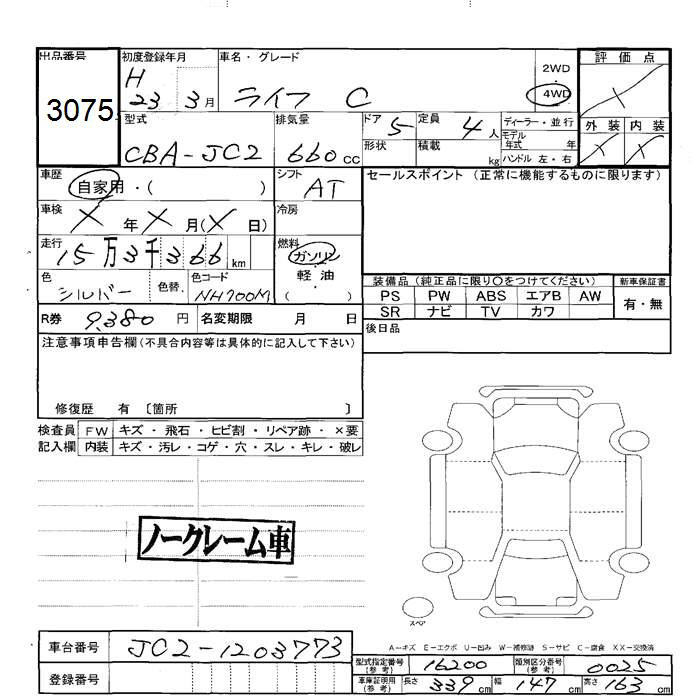 出品番号 初度登録年月 車名・グレード 評価点
3075 H 23 3月 ライフ C 2WD 4WD X
型式 排気量 ドア 5 定員 4人 ディーラー・並行 外装 内装
CBA-JC2 660cc 形状 積載 kg モデル年式 年 X X
ハンドル 左・右
車歴 自家用・( ) シフト AT セールスポイント(正常に機能するものに限ります)
車検 X年X月(X日) 冷房
走行 15万3千366km 燃料 ガソリン
軽油
( )
色 シルバー 色替 色コード NH700M
装備品(純正品に限り○をつけてください) 新車保証書
PS PW ABS エアB AW 有・無
SR ナビ TV カワ
R券 9,380円 名変期限 月 日 後日品
注意事項申告欄(不具合内容等は具体的に記入して下さい)
修復歴 有 〔箇所 〕
検査員 FW キズ・飛石・ヒビ割・リペア跡・×要
記入欄 内装 キズ・汚レ・コゲ・穴・スレ・キレ・破レ
ノークレーム車
スペア
A-キズ E-エクボ U-凹み W-補修跡 S-サビ C-腐食 XX-交換済
車台番号 JC2-1203773
型式指定番号(参考) 16200 類別区分番号(参考) 0025
登録番号
車庫証明用(参考) 長さ 339cm 幅 147cm 高さ 163cm